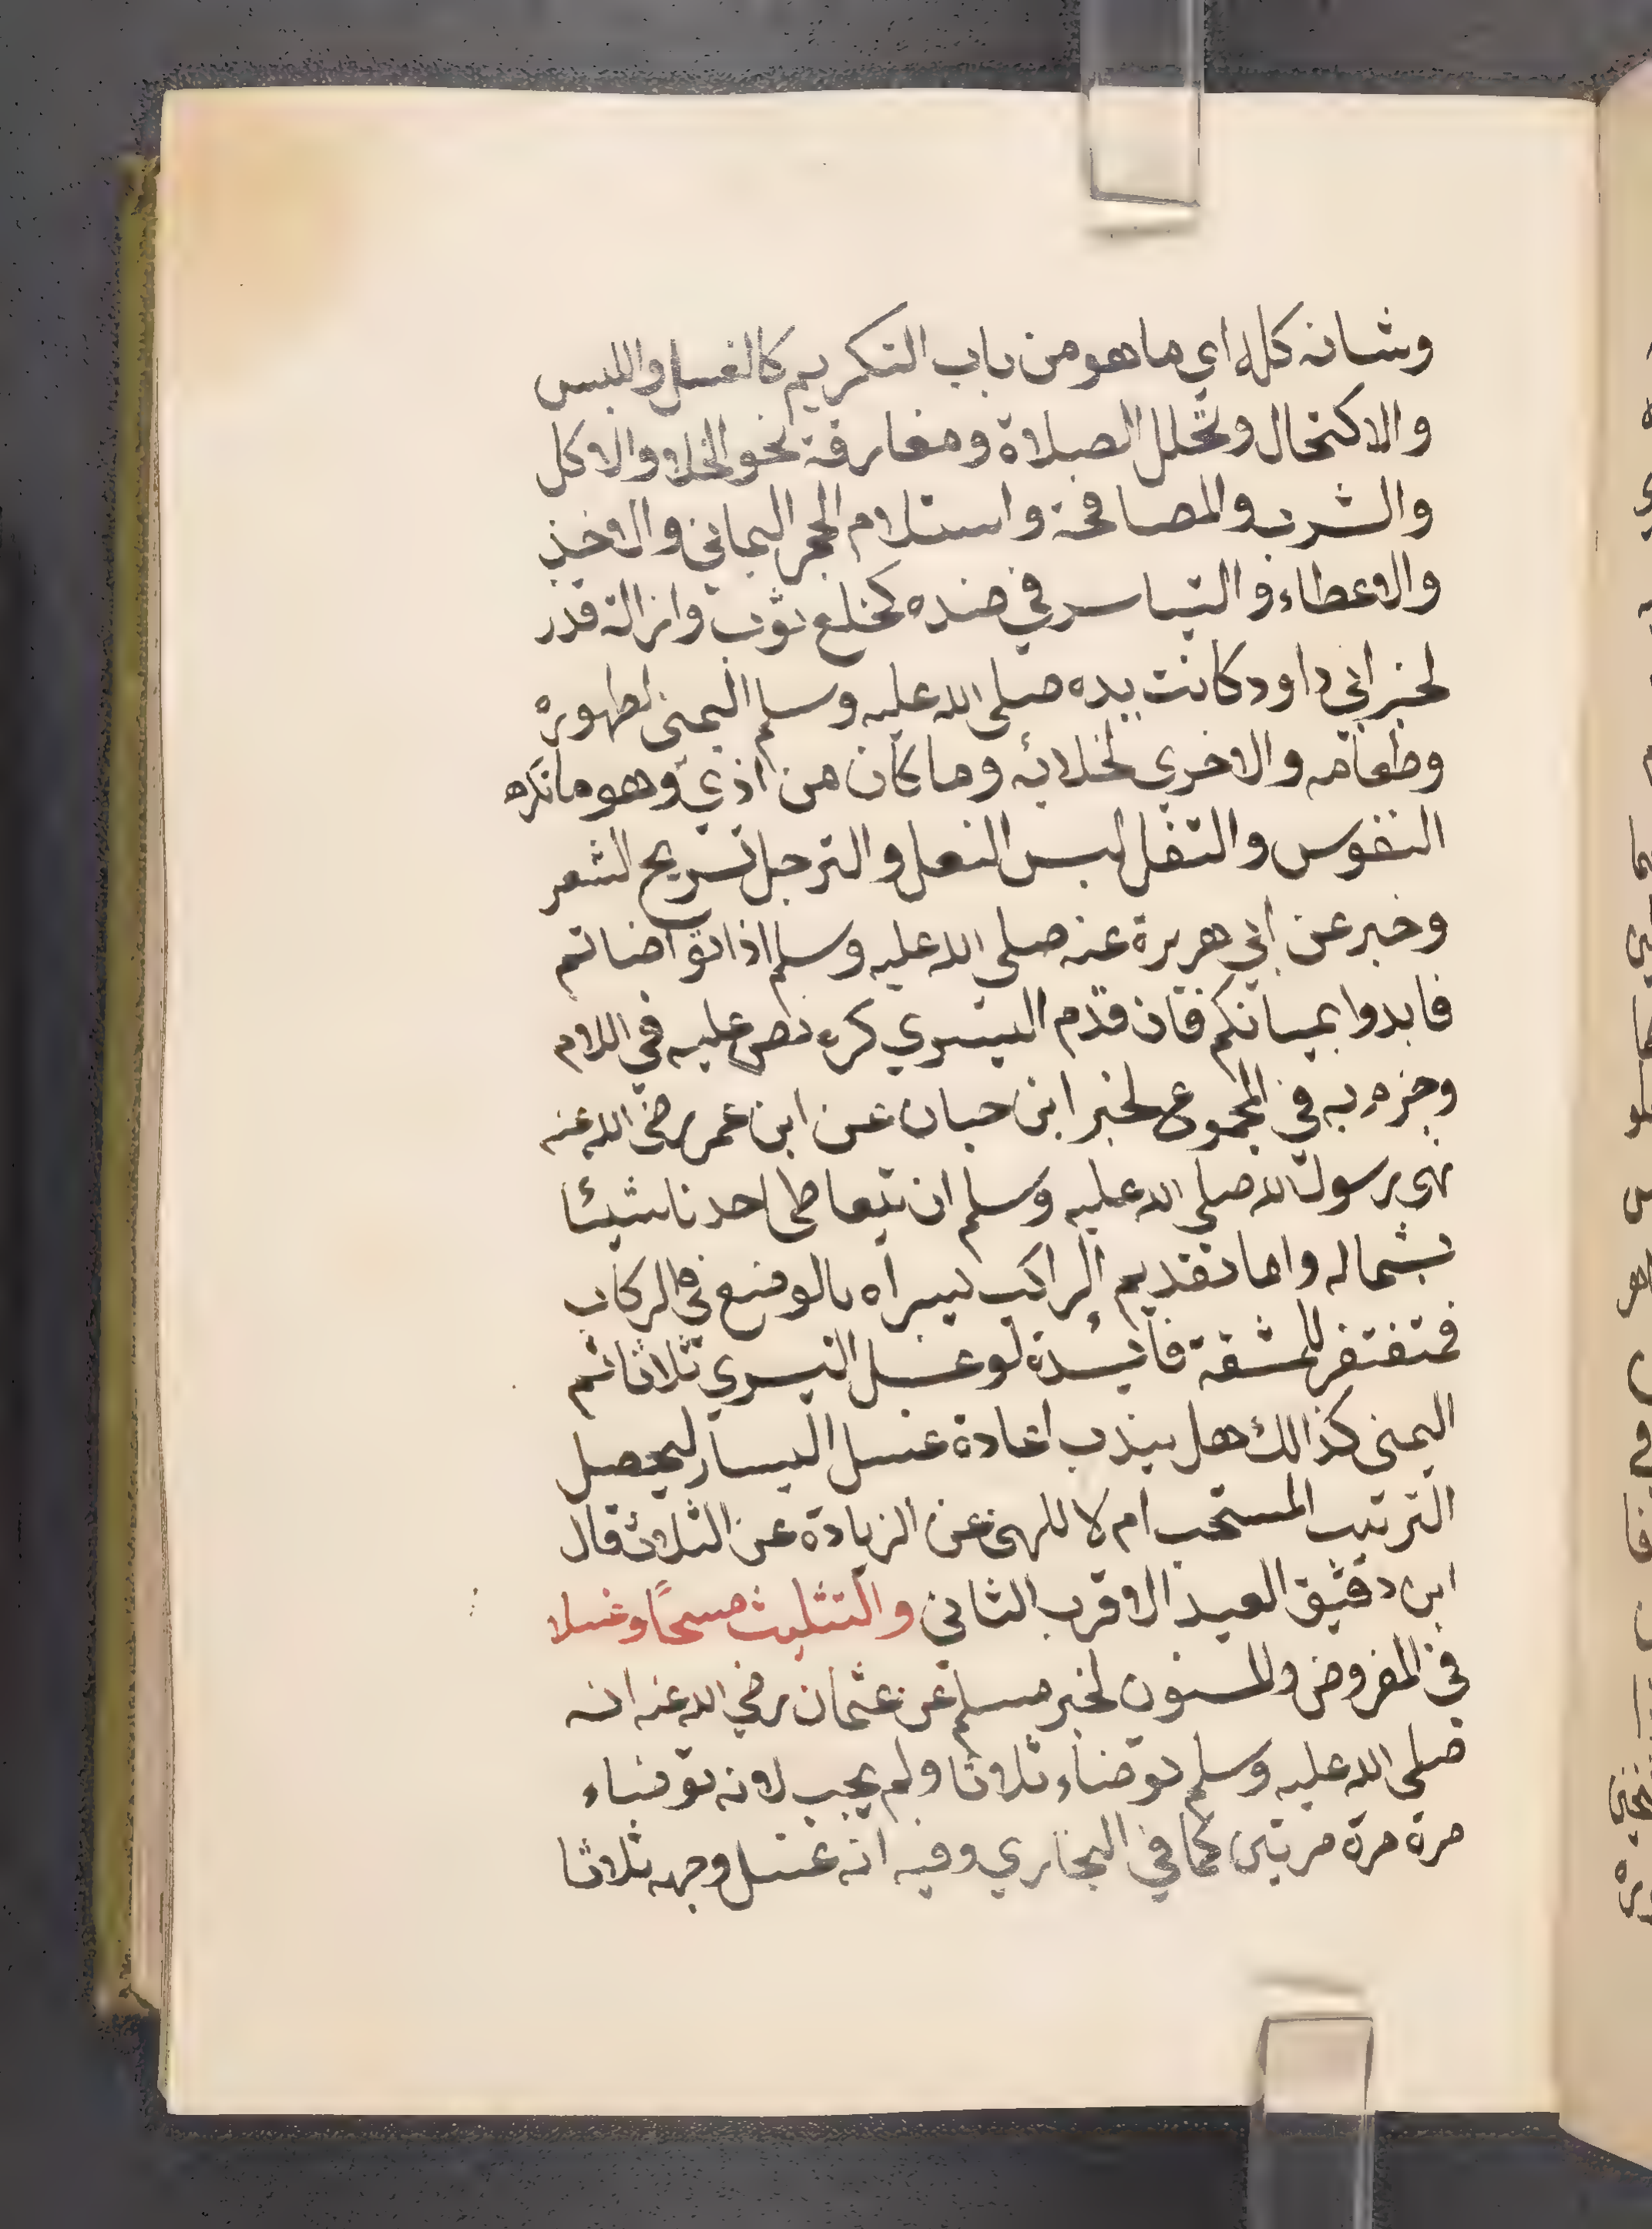 وشانه كله اي ما هو من باب التكريم كالغسل واللبس
والاكتحال وتحلل الصلاة ومفارقة نحو الخلا والاكل
والشرب والمصافحة واستلام الحجر اليماني والاخذ
والاعطاء والتياسر في ضده كخلع ثوب وازالة قدر
لخبر ابي داود كانت يده صلى الله عليه وسلم اليمنى لطهوره
وطعامه والاخري لخلائه وما كان من اذي وهو ما تكره
النفوس والتنفل لبس النعل والترجل تسريح الشعر
وخبر عن ابي هريرة عنه صلى الله عليه وسلم اذا توضاتم
فابدوا بميانكم فان قدم اليسري كره نص عليه في الام
وجزم به في المجموع لخبر ابن حبان عن ابن عمر رضي الله عنه
نهى رسول الله صلى الله عليه وسلم ان يتعاطى احدنا شيئا
بشماله واما تقديم الراكب يسراه بالوضع في الركاب
فمتفتفر للمشقة فائدة لو غسل اليسري ثلاثا ثم
اليمنى كذالك هل يندب اعادة غسل اليسار ليحصل
الترتيب المستحب ام لا للنهي عن الزيادة عن الثلاث قال
ابن دقيق العيد الاقرب الثاني والتثليث مسحًا وغسلا
في المفروض والمسنون لخبر مسلم عن عثمان رضي الله عنه انه
صلى الله عليه وسلم توضاء ثلاثا ولم يجب لانه توضاء
مرة مرة مرتين كما في البخاري وفيه انه غسل وجهه ثلاثا